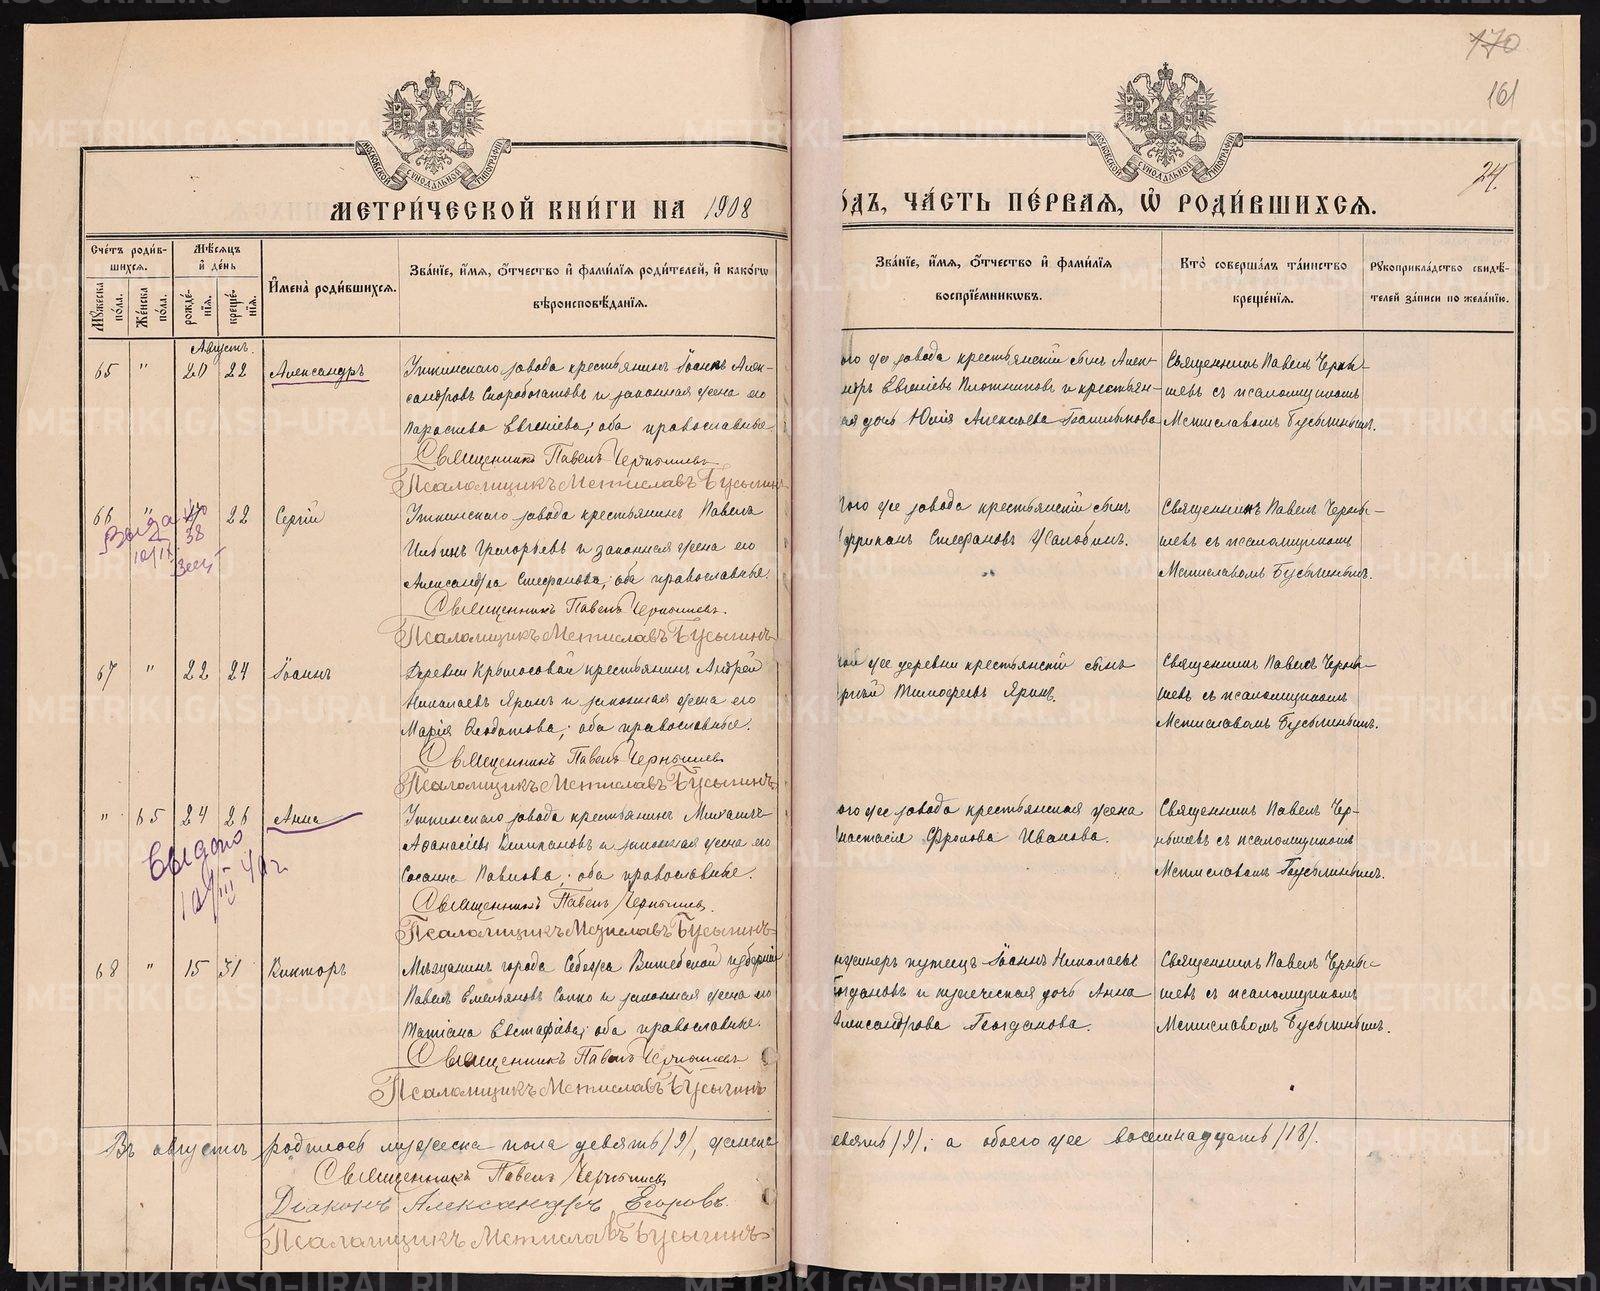 170
161
24.
МОСКОВСКОЙ СУНОДАЛЬНОЙ ТИПОГРАФІИ
МЕТРИ́ЧЕСКОЙ КНИ́ГИ НА 1908
ОДЪ, ЧА́СТЬ ПЕ́РВАѦ, Ѡ҆ РОДИ́ВШИХСѦ.
Сче́тъ роди́в-
шихсѧ.
Мꙋ́жеска по́ла.
Же́нска по́ла.
Мѣ́сѧцъ
и҆ де́нь
рожде́-
нїѧ.
креще́-
нїѧ.
И҆мена̀ роди́вшихсѧ.
Зва́нїе, и҆́мѧ, ѻ҆́тчество и҆ фами́лїѧ роди́телей, и҆ како́гѡ
вѣроисповѣ́данїѧ.
Зва́нїе, и҆́мѧ, ѻ҆́тчество и҆ фами́лїѧ
воспрїе́мникѡвъ.
Кто̀ соверша́лъ та́инство
креще́нїѧ.
Рꙋкоприкла́дство свидѣ́-
телей за́писи по жела́нїю.
Августъ.
65 " 20 22 Александръ
Уткинскаго завода крестьянинъ Іоаннъ Алек-
сандровъ Скоробогатовъ и законная жена его
Параскева Евгеніева; оба православные.
Священникъ Павелъ Чернышевъ
Псаломщикъ Мстиславъ Бусыгинъ
ого же завода крестьянскій сынъ Алек-
ндръ Евгеніевъ Плотниковъ и крестьян-
ая дочь Юлія Алексѣева
Священникъ Павелъ Черны-
шевъ съ псаломщикомъ
Мстиславомъ Бусыгинымъ.
66 " 22 Сергій
Уткинскаго завода крестьянинъ Павелъ
Григорьевъ и законная жена его
Александра Стефанова; оба православные.
Священникъ Павелъ Чернышевъ.
Псаломщикъ Мстиславъ Бусыгинъ
того же завода крестьянскій сынъ
Стефановъ
Священникъ Павелъ Черны-
шевъ съ псаломщикомъ
Мстиславомъ Бусыгинымъ.
67 " 22 24 Іоаннъ
Деревни Крылосовой крестьянинъ Андрей
Николаевъ Яринъ и законная жена его
Марія Ѳеодотова; оба православные.
Священникъ Павелъ Чернышевъ
Псаломщикъ Мстиславъ Бусыгинъ
ой же деревни крестьянскій сынъ
Тимофеевъ Яринъ.
Священникъ Павелъ Черны-
шевъ съ псаломщикомъ
Мстиславомъ Бусыгинымъ.
" 65 24 26 Анна
Выдано
Уткинскаго завода крестьянинъ Михаилъ
Аѳанасіевъ и законная жена его
Павлова; оба православные.
Священникъ Павелъ Чернышевъ.
Псаломщикъ Мстиславъ Бусыгинъ
ого же завода крестьянская жена
настасія Фролова Иванова.
Священникъ Павелъ Чер-
нышевъ съ псаломщикомъ
Мстиславомъ Бусыгинымъ.
68 " 15 31 Викторъ
Мѣщанинъ города Себежа Витебской губерніи
Павелъ Емельяновъ Сопко и законная жена его
Татіана Евстафіева; оба православные.
Священникъ Павелъ Чернышевъ
Псаломщикъ Мстиславъ Бусыгинъ
нженеръ путеецъ Іоаннъ Николаевъ
Богдановъ и купеческая дочь Анна
Александрова Богданова.
Священникъ Павелъ Черны-
шевъ съ псаломщикомъ
Мстиславомъ Бусыгинымъ.
Въ августѣ родилось мужеска пола девять /9/, женска
евять /9/; а обоего же восемнадцать /18/.
Священникъ Павелъ Чернышевъ
Діаконъ Александръ Егоровъ.
Псаломщикъ Мстиславъ Бусыгинъ
METRIKI.GASO-URAL.RU